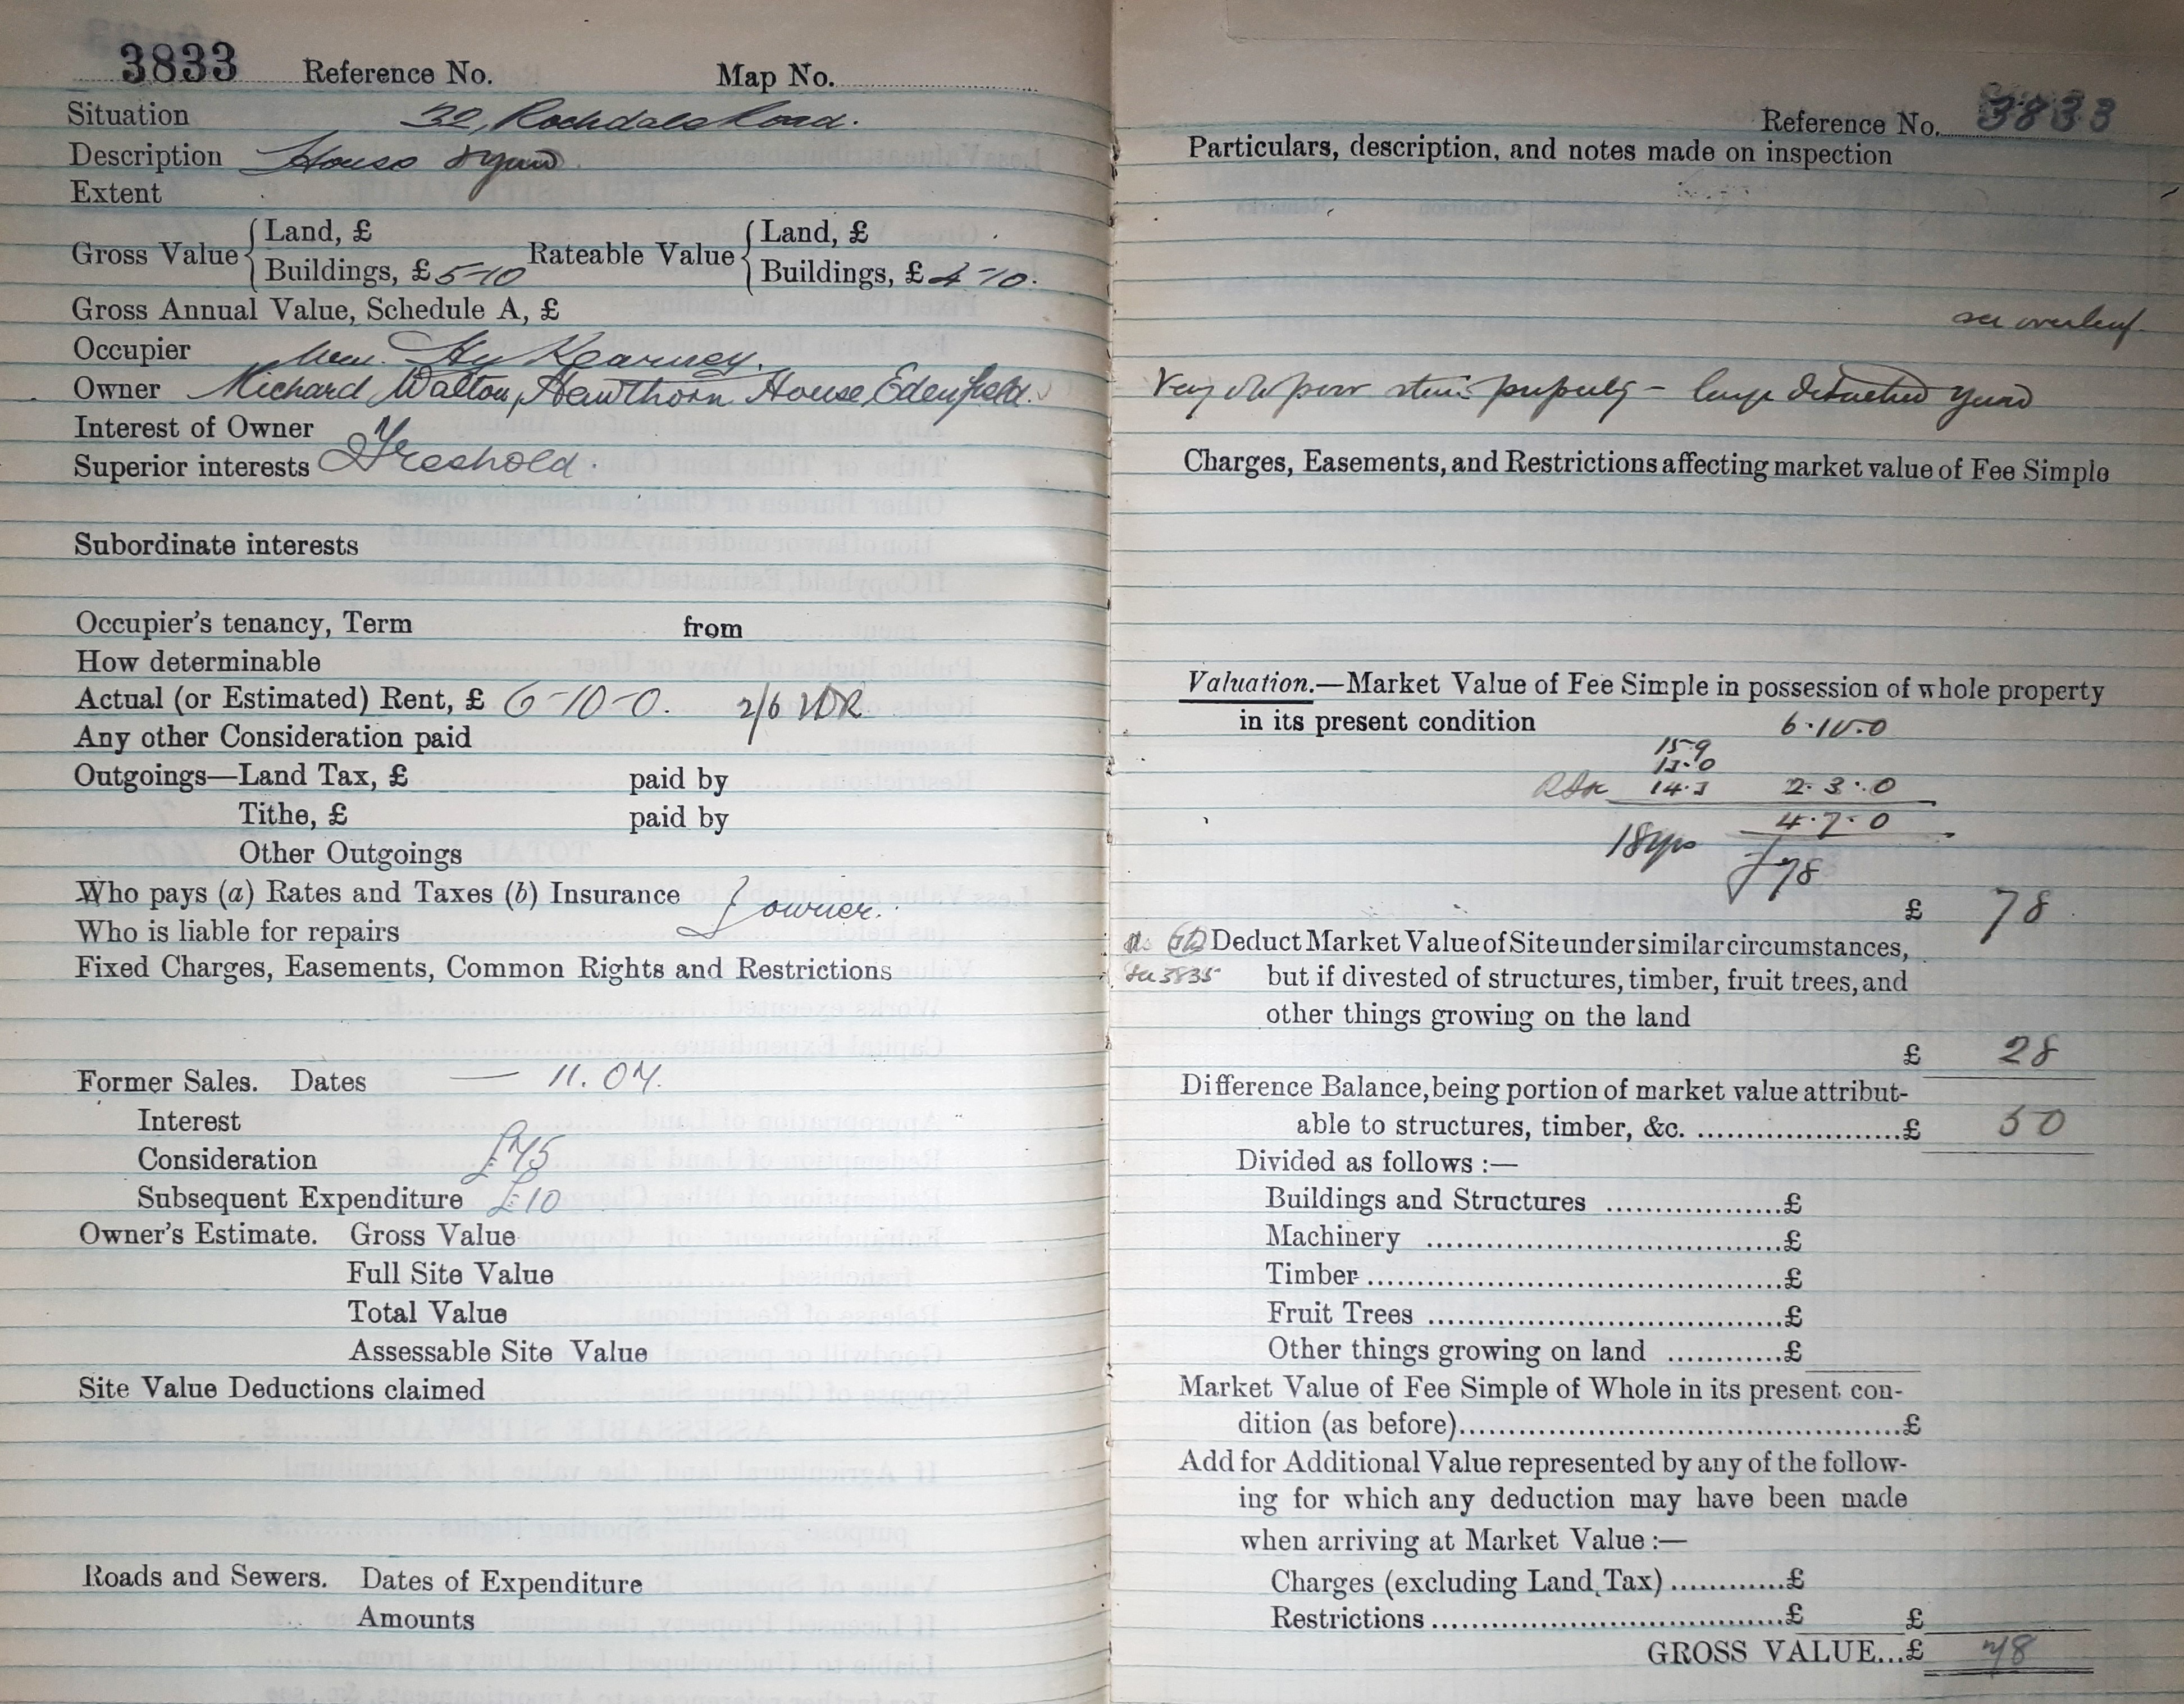 3833 Reference No. Map No.
Situation 32, Rochdale Road.
Description House & yard.
Extent
Gross Value { Land, £ Rateable Value { Land, £
Buildings, £ 5-10 Buildings, £ 4-10.
Gross Annual Value, Schedule A, £
Occupier Wm. Hy Kearney.
Owner Richard Walton, Hawthorn House, Edenfield.
Interest of Owner
Superior interests Freehold.
Subordinate interests
Occupier's tenancy, Term from
How determinable
Actual (or Estimated) Rent, £ 6-10-0. 2/6
Any other Consideration paid
Outgoings—Land Tax, £ paid by
Tithe, £ paid by
Other Outgoings
Who pays (a) Rates and Taxes (b) Insurance } owner.
Who is liable for repairs
Fixed Charges, Easements, Common Rights and Restrictions
Former Sales. Dates — 11. 07.
Interest
Consideration £75
Subsequent Expenditure £10
Owner's Estimate. Gross Value
Full Site Value
Total Value
Assessable Site Value
Site Value Deductions claimed
Roads and Sewers. Dates of Expenditure
Amounts
Reference No. 3833
Particulars, description, and notes made on inspection
see overleaf.
Very old poor stone property - large detached yard
Charges, Easements, and Restrictions affecting market value of Fee Simple
Valuation.—Market Value of Fee Simple in possession of whole property
in its present condition 6.10.0
15.9
13.0
14.3 2.3.0
4.7.0
18yps £78
£ 78
Deduct Market Value of Site under similar circumstances,
See 3835 but if divested of structures, timber, fruit trees, and
other things growing on the land
£ 28
Difference Balance, being portion of market value attribut-
able to structures, timber, &c. ......................£ 50
Divided as follows :—
Buildings and Structures ...................£
Machinery ......................................£
Timber............................................£
Fruit Trees ......................................£
Other things growing on land ............£
Market Value of Fee Simple of Whole in its present con-
dition (as before)................................................£
Add for Additional Value represented by any of the follow-
ing for which any deduction may have been made
when arriving at Market Value :—
Charges (excluding Land Tax)............£
Restrictions......................................£ £
GROSS VALUE...£ 78